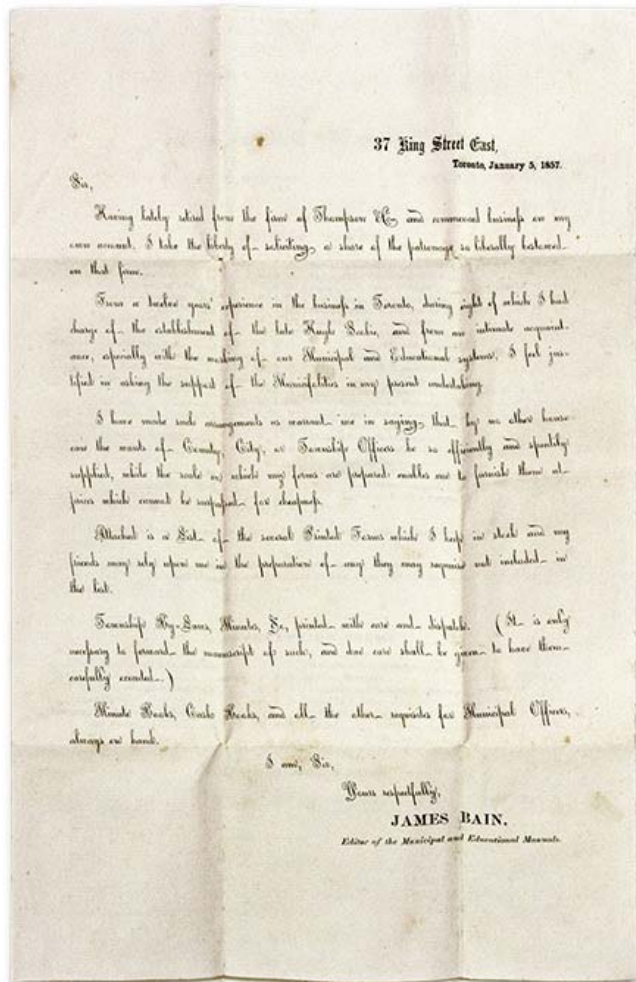 37 King Street East,
Toronto, January 5, 1857.
Sir,
Having lately retired from the firm of Thompson & Co. and commenced business on my
own account, I take the liberty of soliciting a share of the patronage so liberally bestowed
on that firm.
From a twelve years' experience in the business in Toronto, during eight of which I had
charge of the establishment of the late Hugh Scobie, and from an intimate acquaint-
ance, especially with the working of our Municipal and Educational systems, I feel jus-
tified in asking the support of the Municipalities in my present undertaking.
I have made such arrangements as warrant me in saying, that by no other house
can the wants of County, City, or Township Officers be so efficiently and speedily
supplied, while the scale on which my forms are prepared enables me to furnish them at
prices which cannot be surpassed for cheapness.
Attached is a List of the several Printed Forms which I keep in stock and my
friends may rely upon me in the preparation of any they may require not included in
the list.
Township By-Laws, Minutes, &c., printed with care and dispatch. (It is only
necessary to forward the manuscript of such, and due care shall be given to have them
carefully executed.)
Minute Books, Cash Books, and all the other requisites for Municipal Officers,
always on hand.
I am, Sir,
Yours respectfully,
JAMES BAIN,
Editor of the Municipal and Educational Manuals.